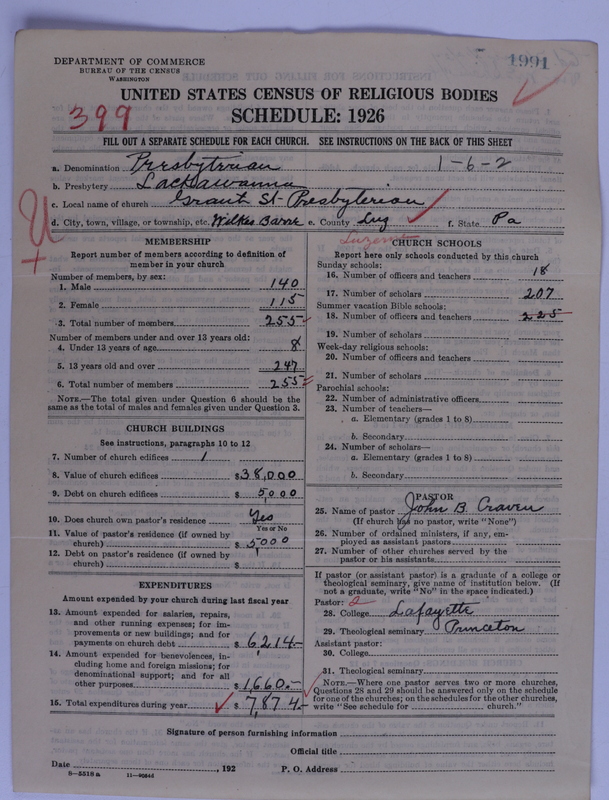 1991
DEPARTMENT OF COMMERCE
BUREAU OF THE CENSUS
WASHINGTON
UNITED STATES CENSUS OF RELIGIOUS BODIES
399
SCHEDULE: 1926
FILL OUT A SEPARATE SCHEDULE FOR EACH CHURCH. SEE INSTRUCTIONS ON THE BACK OF THIS SHEET
a. Denomination Presbyterian 1-6-2
b. Presbytery Lackawanna
c. Local name of church Grant St. Presbyterian
d. City, town, village, or township, etc. Wilkes Barre e. County Luz f. State Pa
Luzerne
MEMBERSHIP
Report number of members according to definition of
member in your church
Number of members, by sex:
1. Male 140
2. Female 115
3. Total number of members 255
Number of members under and over 13 years old:
4. Under 13 years of age 8
5. 13 years old and over 247
6. Total number of members 255
NOTE.—The total given under Question 6 should be the
same as the total of males and females given under Question 3.
CHURCH BUILDINGS
See instructions, paragraphs 10 to 12
7. Number of church edifices 1
8. Value of church edifices $38,000
9. Debt on church edifices $ 5000
10. Does church own pastor's residence Yes
Yes or No
11. Value of pastor's residence (if owned by
church) $ 5000
12. Debt on pastor's residence (if owned by
church) $
EXPENDITURES
Amount expended by your church during last fiscal year
13. Amount expended for salaries, repairs,
and other running expenses; for im-
provements or new buildings; and for
payments on church debt $ 6,214.—
14. Amount expended for benevolences, in-
cluding home and foreign missions; for
denominational support; and for all
other purposes $ 1,660.—
15. Total expenditures during year $ 7,874.—
CHURCH SCHOOLS
Report here only schools conducted by this church
Sunday schools:
16. Number of officers and teachers 18
17. Number of scholars 207
Summer vacation Bible schools:
18. Number of officers and teachers 225
19. Number of scholars
Week-day religious schools:
20. Number of officers and teachers
21. Number of scholars
Parochial schools:
22. Number of administrative officers
23. Number of teachers—
a. Elementary (grades 1 to 8)
b. Secondary
24. Number of scholars—
a. Elementary (grades 1 to 8)
b. Secondary
PASTOR
25. Name of pastor John B. Craven
(If church has no pastor, write "None")
26. Number of ordained ministers, if any, em-
ployed as assistant pastors
27. Number of other churches served by the
pastor or his assistants
If pastor (or assistant pastor) is a graduate of a college or
theological seminary, give name of institution below. (If
not a graduate, write "No" in the space indicated.)
Pastor: 2
28. College Lafayette
29. Theological seminary Princeton
Assistant pastor:
30. College
31. Theological seminary
NOTE.—Where one pastor serves two or more churches,
Questions 28 and 29 should be answered only on the schedule
for one of the churches; on the schedules for the other churches,
write "See schedule for church."
Signature of person furnishing information
Official title
Date , 192 P. O. Address
8—5518a 11—90546